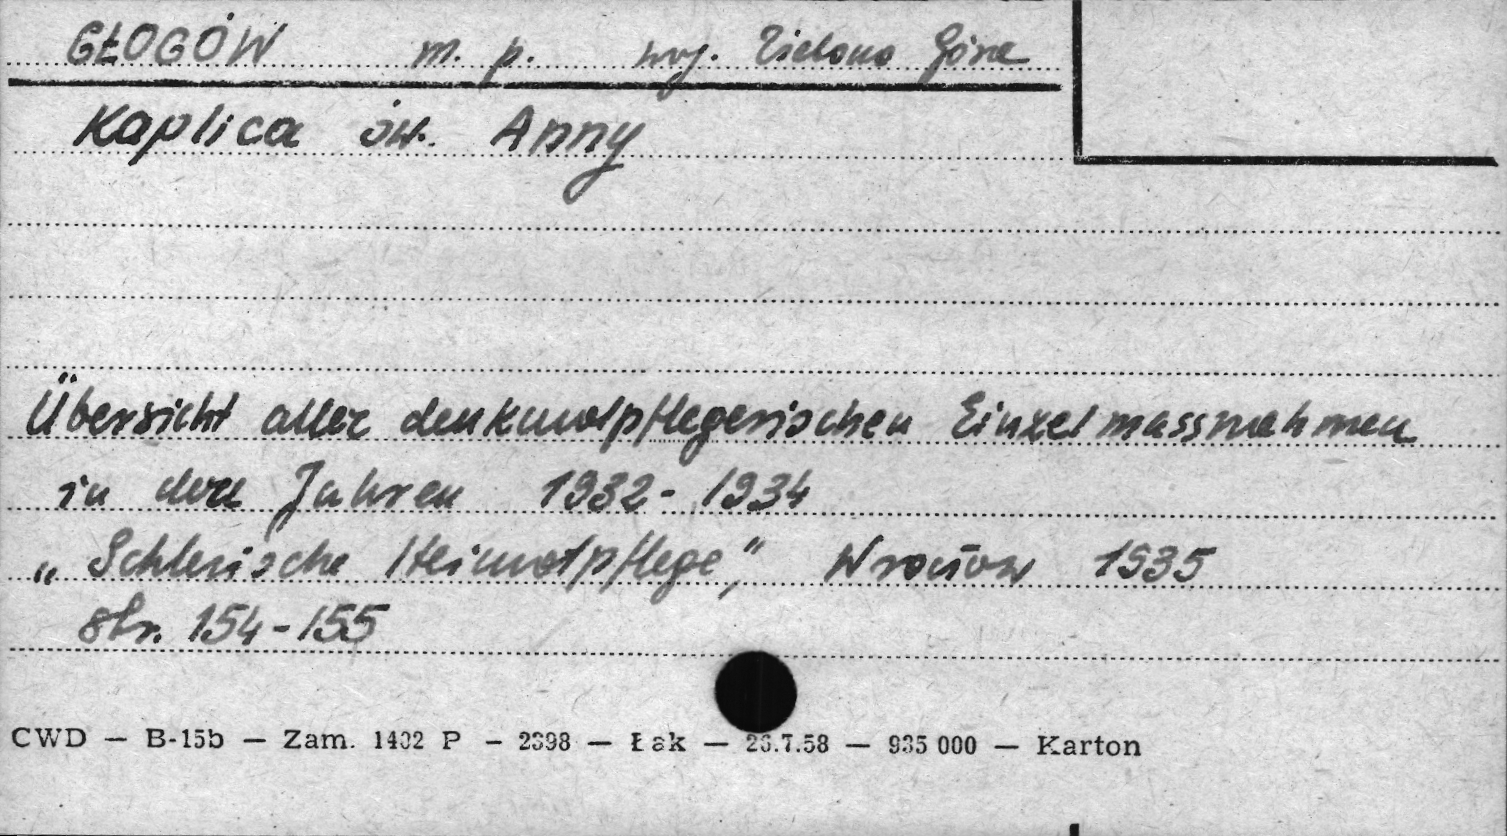 GŁOGÓW m. p. woj. Zielona Góra
Kaplica św. Anny
Übersicht aller denkmalpflegerischen Einzelmassnahmen
in den Jahren 1932-1934
„Schlesische Heimatpflege”, Wrocław 1935
str. 154-155
CWD — B-15b — Zam. 1402 P — 2398 — Łak — 26.7.58 — 935 000 — Karton